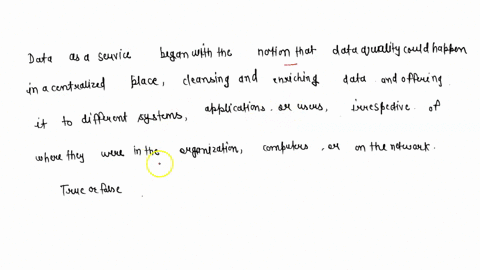 Data as a service began with the notion that data quality could happen
in a centralized place, cleansing and enriching data and offering
it to different systems, applications. or users, irrespective of
where they were in the organization, computers. or on the network.
True or false